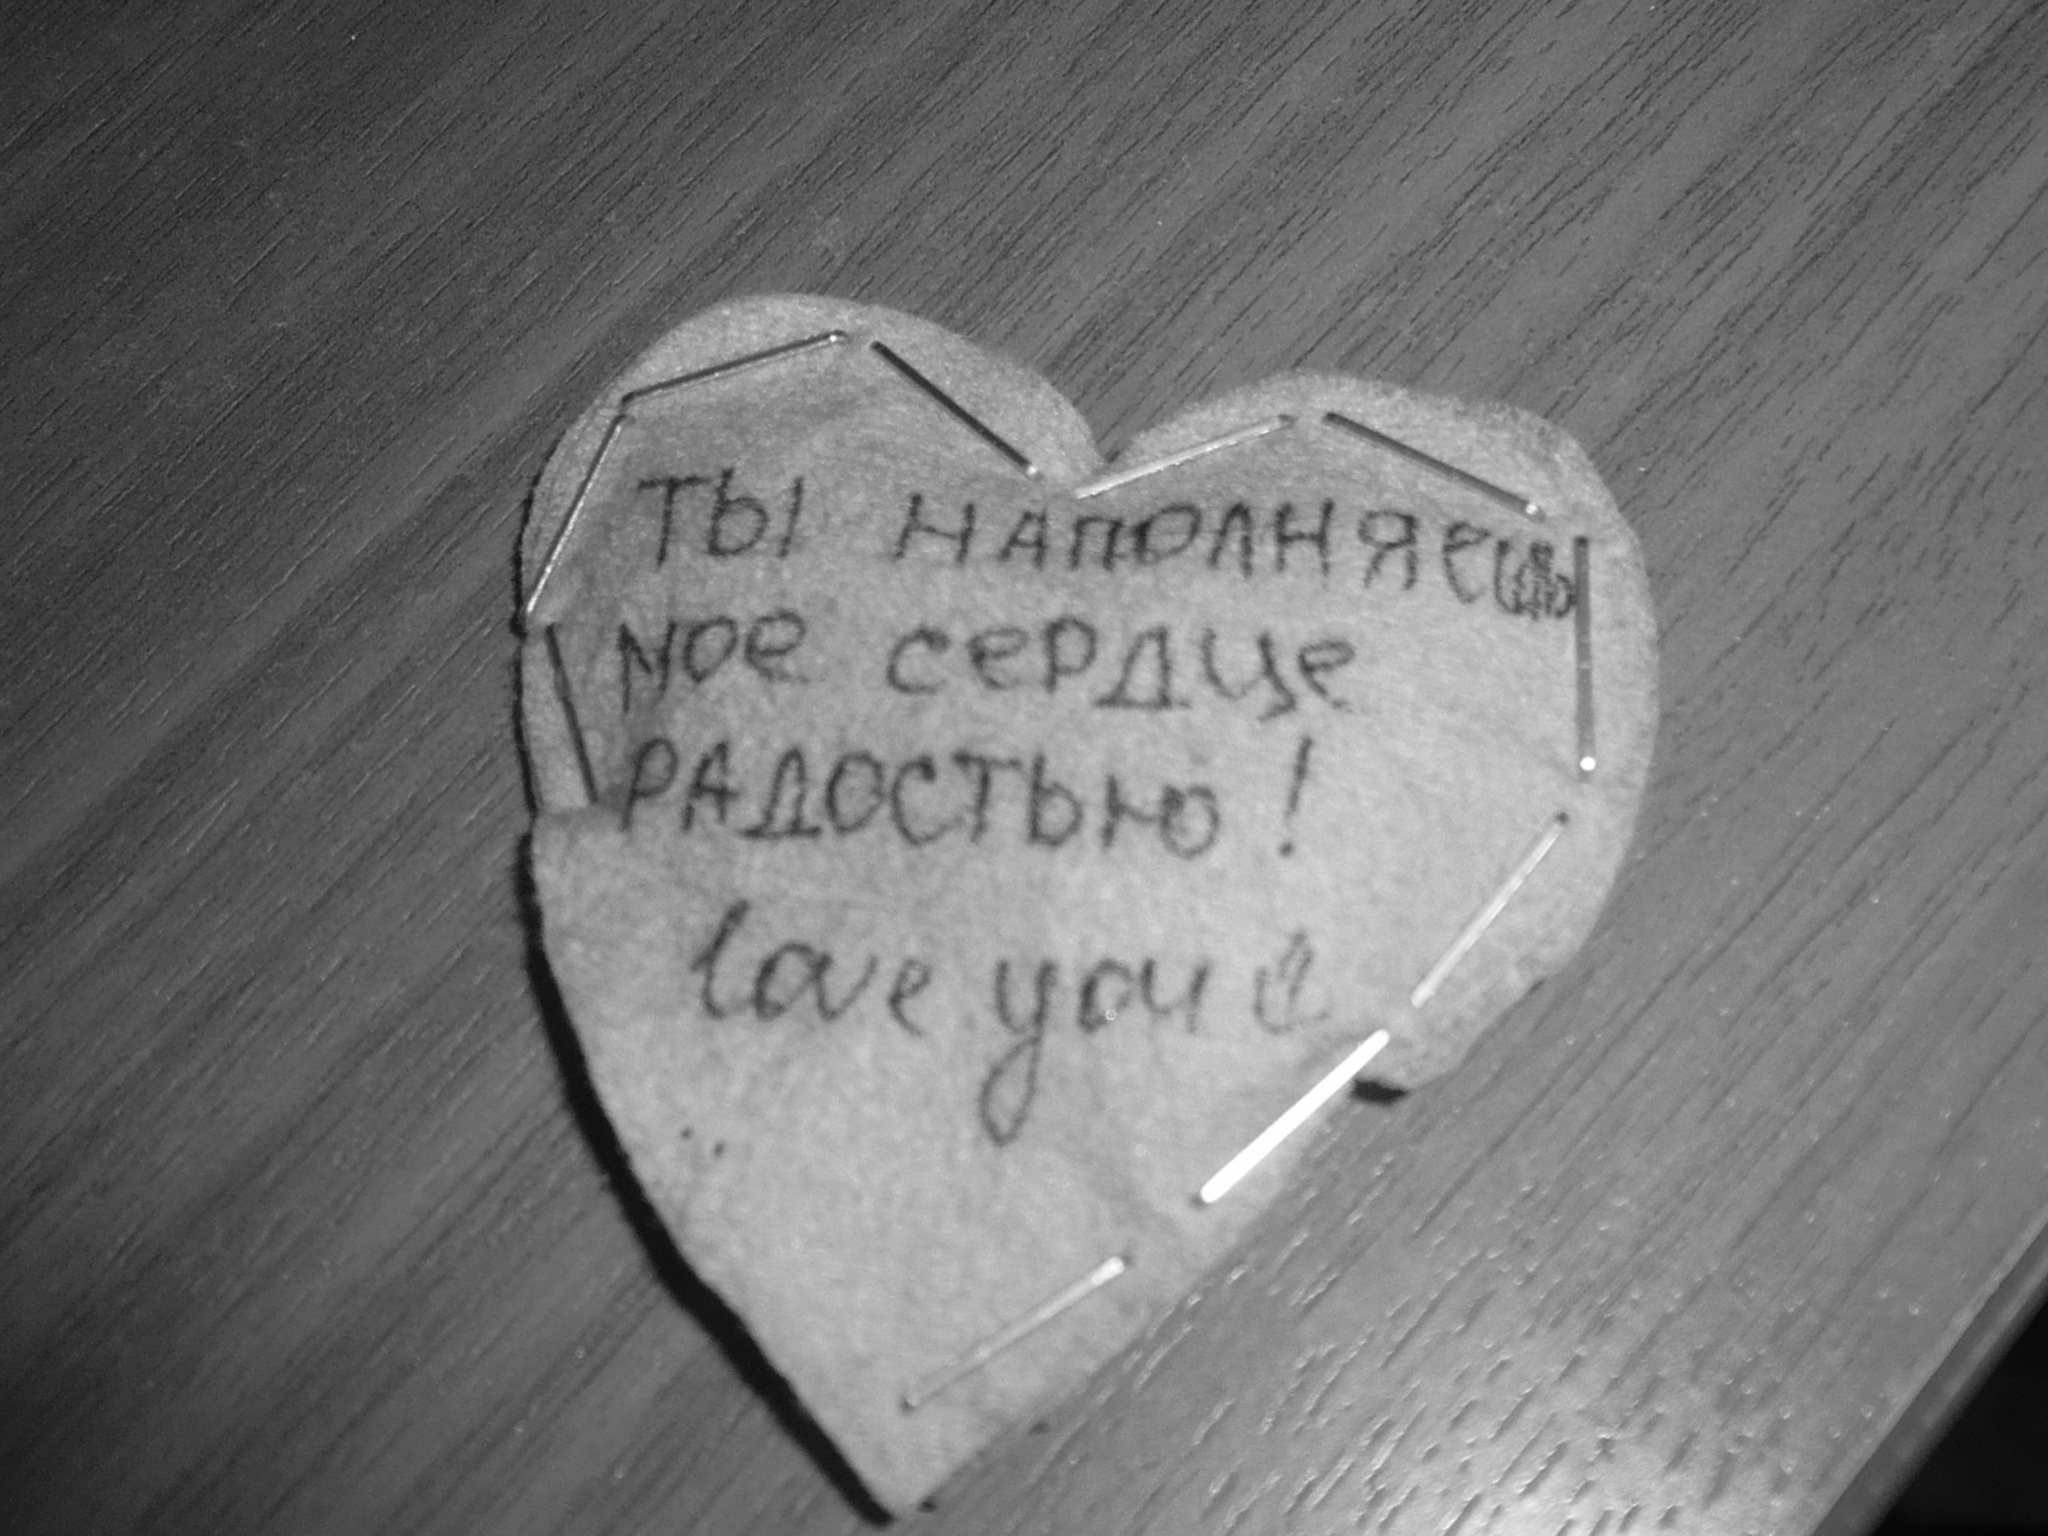 ТЫ НАПОЛНЯЕШЬ
МОЕ СЕРДЦЕ
РАДОСТЬЮ!
love you